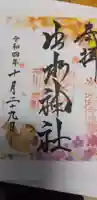 奉拝
出水神社
令和四年十月二十九日